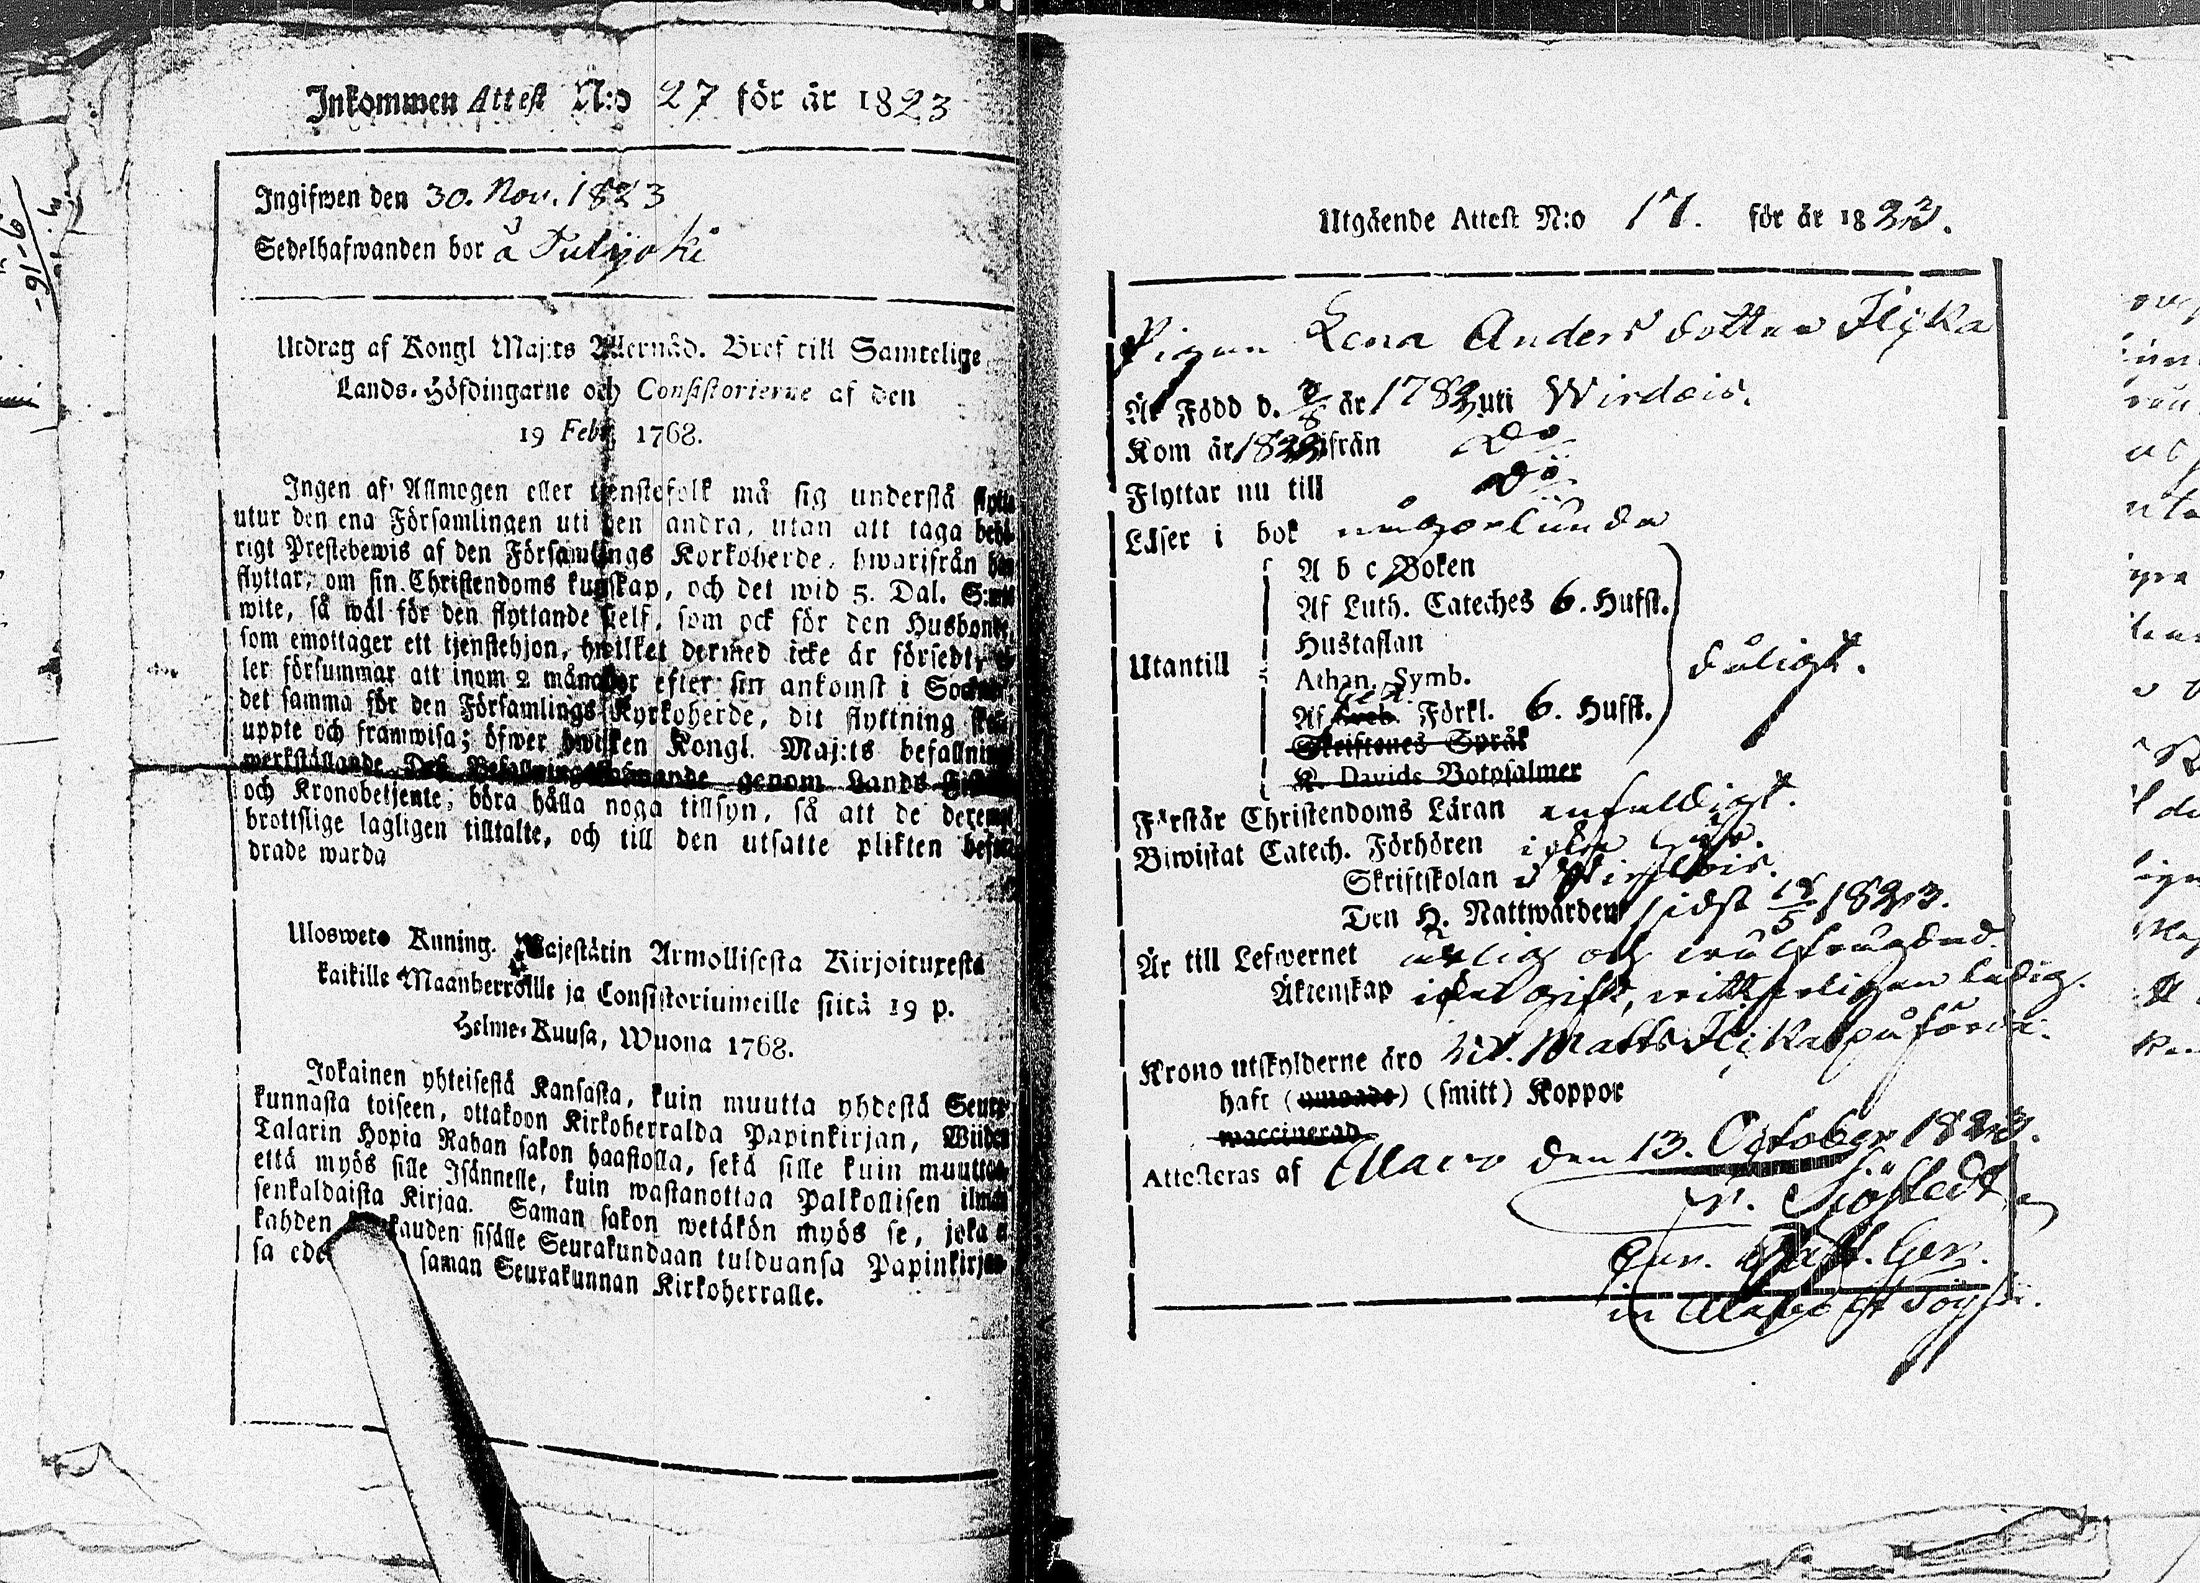 Inkommen Attest N:o 27 för år 1823
Ingifwen den 30. Nov. 1823
Sedelhafwanden bor å Pulijoki
Utdrag af Kongl Maj:ts Allernåd. Bref till Samtelige
Lands-Höfdingarne och Consistorierne af den
19 Febr. 1768.
Ingen af Allmogen eller tjenstefolk må sig understå flytta
utur den ena Församlingen uti den andra, utan att taga behö-
rigt Prestebewis af den Församlings Korkoherde, hwarifrån han
flyttar, om sin Christendoms kunskap, och det wid 5. Dal. S:mt
wite, så wäl för den flyttande sjelf, som ock för den Husbonde,
som emottager ett tjenstehjon, hwilket dermed icke är försedt, el-
ler försummar att inom 2 månader efter sin ankomst i Socknen,
det samma för den Församlings Kyrkoherde, dit flyttning sker,
uppte och framwisa; öfwer hwilken Kongl. Maj:ts befallning
werkställande Des Befallningshafwande genom Lands-Fiskaler
och Kronobetjente, böra hålla noga tillsyn, så att de deremot
brottslige lagligen tilltalte, och till den utsatte plikten befor-
drade warda
Uloswete Kuning. Majestätin Armollisesta Kirjoituxesta
kaikille Maanherroille ja Consistoriumeille siitä 19 p.
Helme-Kuusa, Wuona 1768.
Jokainen yhteisestä Kansasta, kuin muutta yhdestä Seura-
kunnasta toiseen, ottakoon Kirkoherralda Papinkirjan, Wiiden
Talarin Hopia Rahan sakon haastolla, sekä sille kuin muuttaa,
että myös sille Isännelle, kuin wastanottaa Palkollisen ilman
senkaldaista Kirjaa. Saman sakon wetäkön myös se, joka ei
kahden kauden sisälle Seurakundaan tulduansa Papinkirjan-
sa ede saman Seurakunnan Kirkoherralle.
Utgående Attest N:o 17. för år 1823.
Pigan Lena Anders dotter Ilijka
Är Född d. år 1782 uti Wirdois.
Kom år 1822 ifrån Do
Flyttar nu till Do
Läser i bok någorlunda
A b c Boken
Af Luth. Cateches 6. Hufst.
Hustaflan
Utantill dåligt.
Athan. Symb.
Af Förkl. 6. Hufst.
Skriftenes Språk
K. Davids Botpsalmer
Förstår Christendoms Läran enfaldigt.
Biwistat Catech. Förhören
Skriftskolan i
Den H. Nattwarden sidst 18/5 1823.
Är till Lefwernet ärlig och
Äktenskap icke gift, witterligen ledig.
Krono utskylderne äro Matts Ilijka påförde.
haft (smitt) Koppor
waccinerad
Attesteras af Alavo den 13. October 1823.
Sjöstedt
in Alavo et Töijsä.